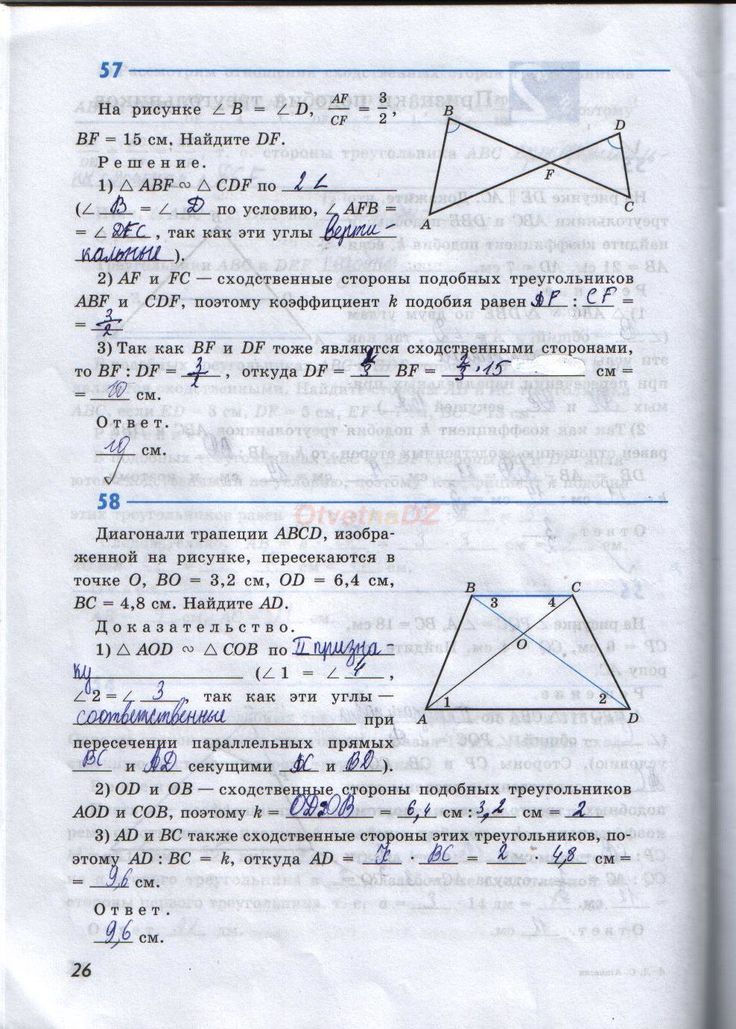 57
На рисунке ∠ B = ∠ D, AF/CF = 3/2,
BF = 15 см. Найдите DF.
Решение.
1) △ ABF ∾ △ CDF по 2 ∠
(∠ B = ∠ D по условию, ∠ AFB =
= ∠ DFC, так как эти углы верти-
кальные).
2) AF и FC — сходственные стороны подобных треугольников
ABF и CDF, поэтому коэффициент k подобия равен AF : CF =
= 3/2
3) Так как BF и DF тоже являются сходственными сторонами,
то BF : DF = 3/2, откуда DF = BF = 2/3 · 15 см =
= 10 см.
Ответ.
10 см.
B
D
F
A
C
58
OtvetnaDZ
Диагонали трапеции ABCD, изобра-
женной на рисунке, пересекаются в
точке O, BO = 3,2 см, OD = 6,4 см,
BC = 4,8 см. Найдите AD.
Доказательство.
1) △ AOD ∾ △ COB по II призна
ку (∠ 1 = ∠ 4,
∠ 2 = ∠ 3, так как эти углы —
соответственные при
пересечении параллельных прямых
BC и AD секущими AC и BD).
B
C
3
4
O
1
2
A
D
2) OD и OB — сходственные стороны подобных треугольников
AOD и COB, поэтому k = OD:OB = 6,4 см : 3,2 см = 2
3) AD и BC также сходственные стороны этих треугольников, по-
этому AD : BC = k, откуда AD = K · BC = 2 · 4,8 см =
= 9,6 см.
Ответ.
9,6 см.
26